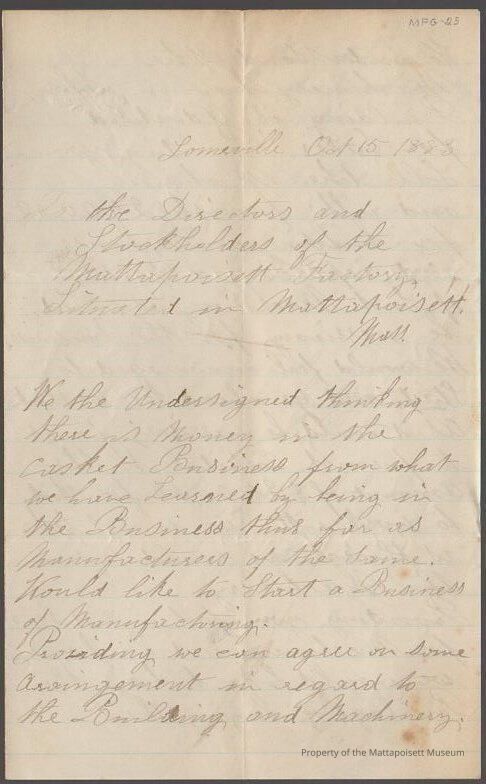 MPG-25
Someville Oct 15 1883
the Directors and
Stockholders of the
Mattapoisett Factory,
Situated in Mattapoisett.
Mass.
We the Undersigned thinking
there is Money in the
Casket Business from what
we have Learned by being in
the Business thus far as
Manufacturers of the same.
Would like to Start a Business
of Manufactoring.
Providing we can agree on some
Arangement in regard to
the Building and Machinery.
Property of the Mattapoisett Museum